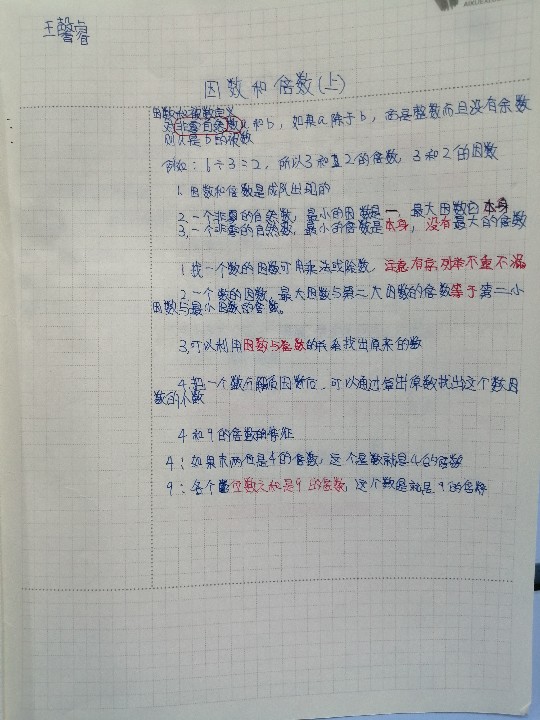 王馨睿
因数和倍数(上)
因数和倍数定义
对非零自然数a和b，如果a除于b，商是整数而且没有余数
则a是b的倍数
例如：6÷3=2，所以3和2的倍数 3和2的因数
1.因数和倍数是成队出现的
2.一个非零的自然数，最小的因数是一，最大因数的本身
3.一个非零的自然数，最小的倍数是本身，没有最大的倍数
1找一个数的因数可用乘法或除数，注意有序列举不重不漏
2.一个数的因数，最大因数与第二大因数的倍数等于第二小
因数与最小因数的倍数。
3.可以利用因数与倍数的关系找出原来的数
4.把一个数分解质因数后，可以通过算出原数找出这个数因
数的个数
4和9的倍数的特征
4：如果末两位是4的倍数，这个是数就是4的倍数
9：各个数位数之和是9的倍数，这个数是就是9的倍数